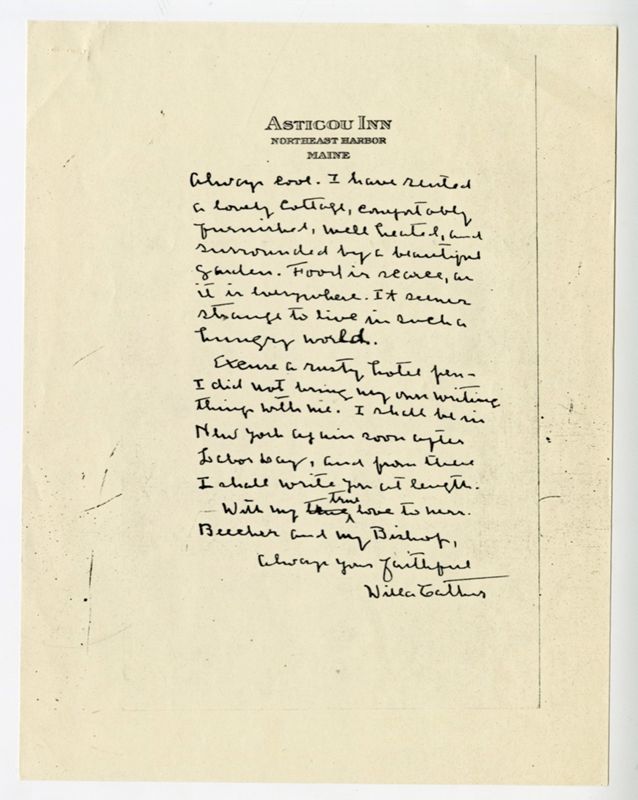 ASTICOU INN
NORTHEAST HARBOR
MAINE
always cool. I have rented
a lovely cottage, comfortably
furnished, well heated, and
surrounded by a beautiful
garden. Food is scarce, as
it is everywhere. It seems
strange to live in such a
hungry world.
Excuse a rusty hotel pen—
I did not bring my own writing
things with me. I shall be in
New York again soon after
Labor Day, and from there
I shall write you at length.
With my true love to Mrs.
Beecher and my Bishop,
Always your faithful
Willa Cather